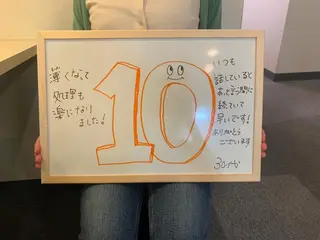 薄くなって
処理も
楽になり
ました!
10
いつも
話していると
あっと言う間に
続いて
早いです!
ありがとう
ございます